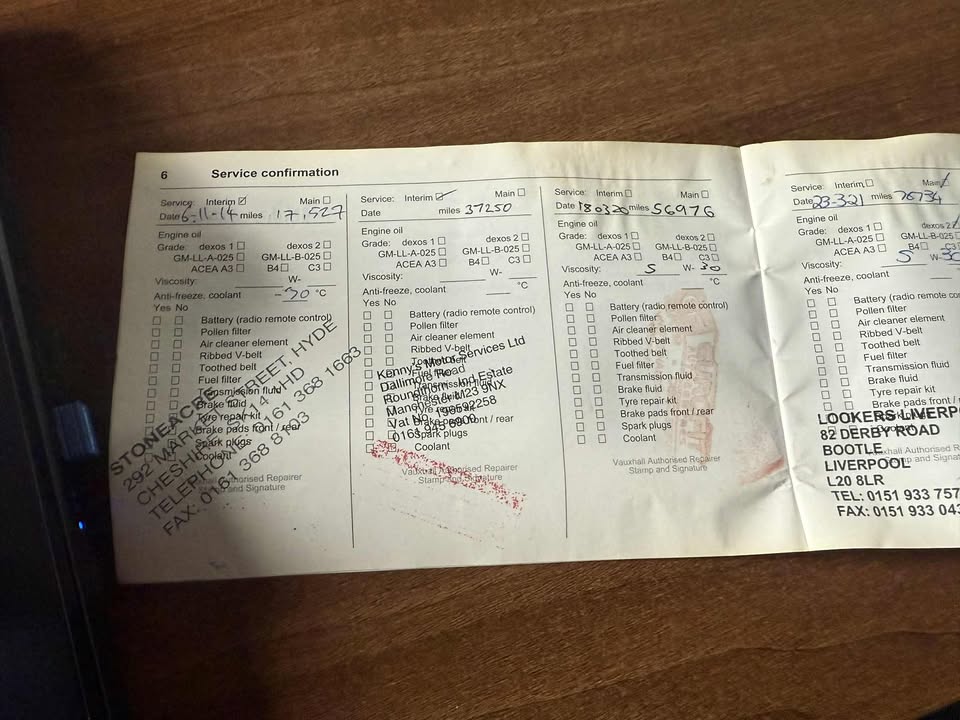 6 Service confirmation
Service: Interim Main
Date 6-11-14 miles 17,527
Engine oil
Grade: dexos 1 dexos 2
GM-LL-A-025 GM-LL-B-025
ACEA A3 B4 C3
Viscosity: W-
Anti-freeze, coolant -30 °C
Yes No
Battery (radio remote control)
Pollen filter
Air cleaner element
Ribbed V-belt
Toothed belt
Fuel filter
Transmission fluid
Brake fluid
Tyre repair kit
Brake pads front / rear
Spark plugs
Coolant
Vauxhall Authorised Repairer
Stamp and Signature
STONEACRE
292 MARKET STREET, HYDE
CHESHIRE SK14 1HD
TELEPHONE: 0161 368 1663
FAX: 0161 368 8103
Service: Interim Main
Date miles 37250
Engine oil
Grade: dexos 1 dexos 2
GM-LL-A-025 GM-LL-B-025
ACEA A3 B4 C3
Viscosity: W-
Anti-freeze, coolant °C
Yes No
Battery (radio remote control)
Pollen filter
Air cleaner element
Ribbed V-belt
Toothed belt
Fuel filter
Transmission fluid
Brake fluid
Tyre repair kit
Brake pads front / rear
Spark plugs
Coolant
Vauxhall Authorised Repairer
Stamp and Signature
Kenny's Motor Services Ltd
Dallimore Road
Roundthorn Ind Estate
Manchester M23 9NX
Vat No.
0161 945
Service: Interim Main
Date 180320 miles 56976
Engine oil
Grade: dexos 1 dexos 2
GM-LL-A-025 GM-LL-B-025
ACEA A3 B4 C3
Viscosity: 5 W- 30
Anti-freeze, coolant °C
Yes No
Battery (radio remote control)
Pollen filter
Air cleaner element
Ribbed V-belt
Toothed belt
Fuel filter
Transmission fluid
Brake fluid
Tyre repair kit
Brake pads front / rear
Spark plugs
Coolant
Vauxhall Authorised Repairer
Stamp and Signature
Service: Interim Main
Date 23-321 miles 76734
Engine oil
Grade: dexos 1 dexos 2
GM-LL-A-025 GM-LL-B-025
ACEA A3 B4 C3
Viscosity: 5 W-30
Anti-freeze, coolant
Yes No
Battery (radio remote co
Pollen filter
Air cleaner element
Ribbed V-belt
Toothed belt
Fuel filter
Transmission fluid
Brake fluid
Tyre repair kit
Brake pads front / rea
Spark plugs
Coolant
Vauxhall Authorised Re
Stamp and Signa
LOOKERS LIVERP
82 DERBY ROAD
BOOTLE
LIVERPOOL
L20 8LR
TEL: 0151 933 757
FAX: 0151 933 043